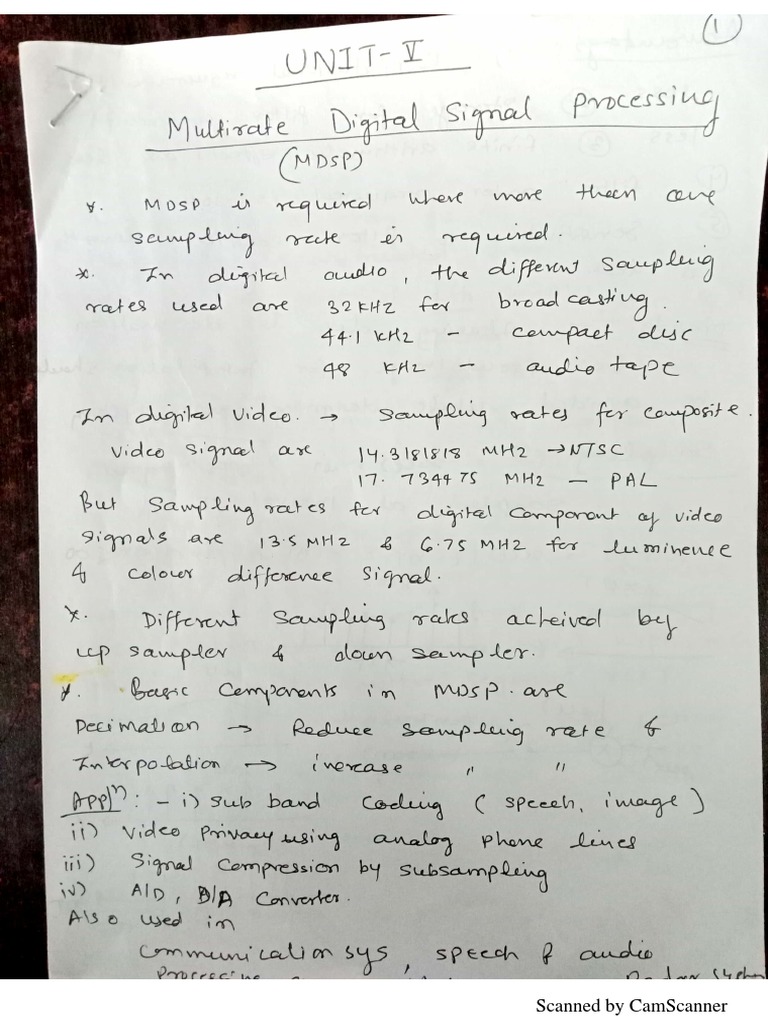 1
UNIT-V
Multirate Digital Signal Processing
(MDSP)
*. MDSP is required where more than one
sampling rate is required.
*. In digital audio, the different sampling
rates used are 32 KHz for broadcasting.
44.1 KHz - compact disc
48 KHz - audio tape
In digital video. → Sampling rates for composite.
video signal are 14.3181818 MHz → NTSC
17.734475 MHz - PAL
But sampling rates for digital component of video
signals are 13.5 MHz & 6.75 MHz for luminence
& colour difference signal.
*. Different sampling rates acheived by
up sampler & down sampler.
*. Basic Components in MDSP. are
Decimation → Reduce sampling rate &
Interpolation → increase " "
Appln : - i) sub band Coding ( speech, image )
ii) Video privacy using analog phone lines
iii) Signal Compression by subsampling
iv) A/D, D/A Converter.
Also used in
Communication sys, speech & audio
Processing
Scanned by CamScanner